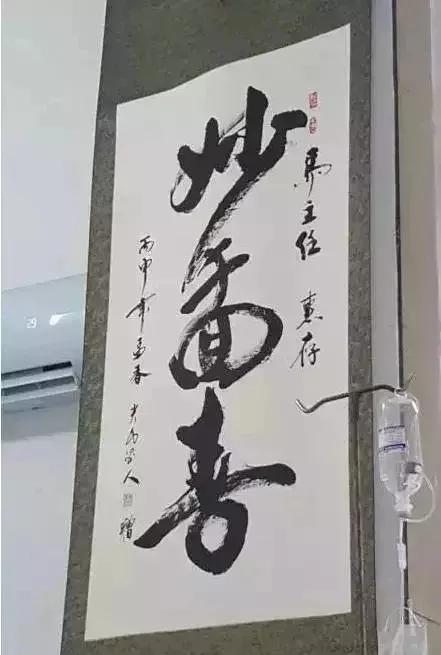 馬主任 惠存
妙手回春
丙申年孟春 人 贈
29